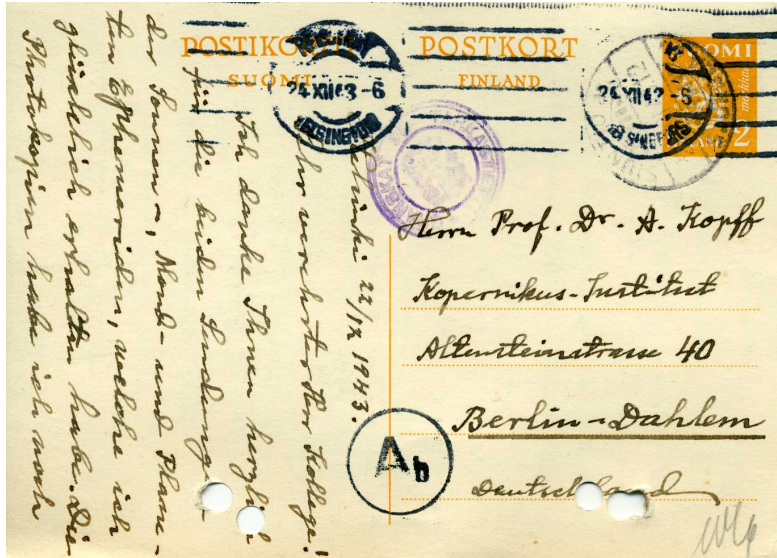 POSTIKORTTI
SUOMI
POSTKORT
FINLAND
SUOMI
2
24 XII 43 - 6
HELSINGFORS
24 XII 43 - 6
HELSINGFORS
Herrn Prof. Dr. A. Kopff
Kopernikus-Institut
Altensteinstrasse 40
Berlin-Dahlem
Deutschland
Ab
Helsinki 22/12 1943.
Sehr verehrter Herr Kollege!
Ich danke Ihnen herzlich
für die beiden Sendungen
der Sonnen-, Mond- und Plane-
ten Ephemeriden, welche ich
glücklich erhalten habe. Die
Photokopien habe ich noch